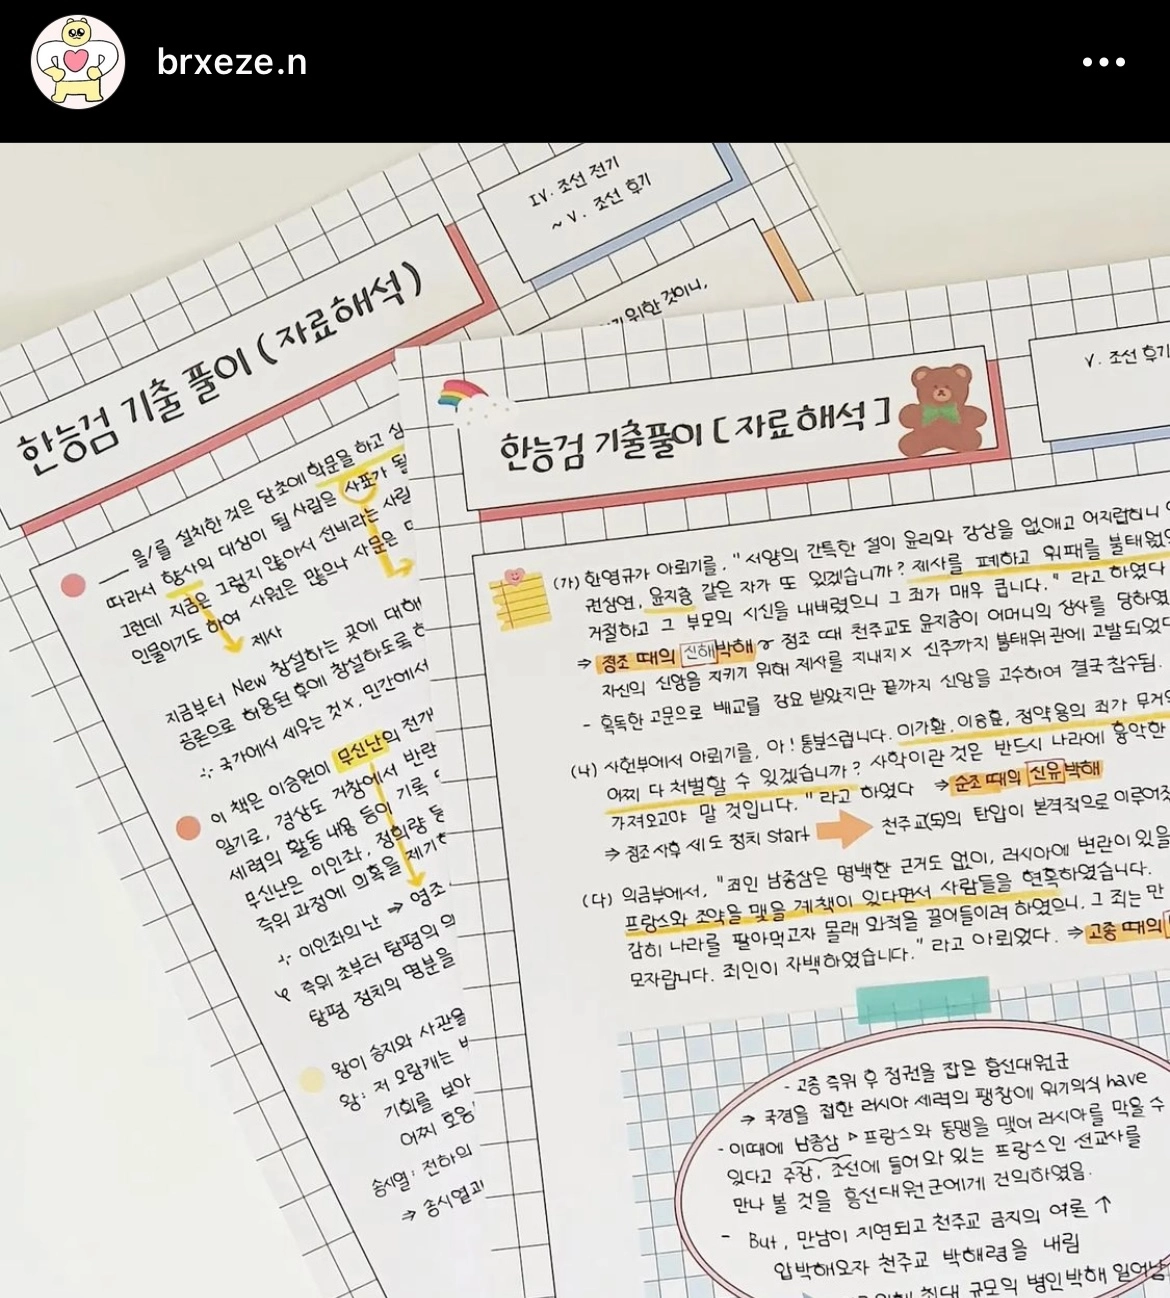 brxeze.n
IV. 조선 전기
~ V. 조선 후기
위한 것이니,
한능검 기출 풀이 (자료해석)
을/를 설치한 것은 당초에 학문을 하고 싶
따라서 향사의 대상이 될 사람은 사표가 될
그런데 지금은 그렇지 않아서 선비라는 사람
인물이기도 하여 사원은 많으나 사문은
제사
지금부터 New 창설하는 곳에 대해
공론으로 허용된 후에 창설하도록
∴ 국가에서 세우는 것×, 민간에서
이 책은 이승원이 무신난의 전개
일기로, 경상도 거창에서 반란
세력의 활동 내용 등이 기록
무신난은 이인좌, 정희량 등
즉위 과정에 의혹을 제기
∴ 이인좌의 난 ⇒ 영조
즉위 초부터 탕평의
탕평 정치의 명분을
왕이 승지와 사관을
왕: 저 오랑캐는
기회를 보아
어찌 호응
송시열: 전하의
⇒ 송시열과
V. 조선 후기
한능검 기출풀이 [자료해석]
(가) 한영규가 아뢰기를, "서양의 간특한 설이 윤리와 강상을 없애고 어지럽히니
권상연, 윤지충 같은 자가 또 있겠습니까? 제사를 폐하고 위패를 불태웠으
거절하고 그 부모의 시신을 내버렸으니 그 죄가 매우 큽니다." 라고 하였다
⇒ 정조 때의 신해박해 정조 때 천주교도 윤지충이 어머니의 상사를 당하였
자신의 신앙을 지키기 위해 제사를 지내지× 신주까지 불태워 관에 고발되었다
- 혹독한 고문으로 배교를 강요 받았지만 끝까지 신앙을 고수하여 결국 참수됨.
(나) 사헌부에서 아뢰기를, 아! 통분스럽니다. 이가환, 이승훈, 정약용의 죄가 무거
어찌 다 처벌할 수 있겠습니까? 사학이란 것은 반드시 나라에 흉악한
가져오고야 말 것입니다." 라고 하였다 ⇒ 순조 때의 신유박해
⇒ 정조 사후 세도 정치 Start 천주교(도)의 탄압이 본격적으로
(다) 의금부에서, "죄인 남종삼은 명백한 근거도 없이, 러시아에 변란이 있을
프랑스와 조약을 맺을 계책이 있다면서 사람들을 현혹하였습니다.
감히 나라를 팔아먹고자 몰래 외적을 끌어들이려 하였으니, 그 죄는 만
모자랍니다. 죄인이 자백하였습니다." 라고 아뢰었다. ⇒ 고종 때의
- 고종 즉위 후 정권을 잡은 흥선대원군
→ 국경을 접한 러시아 세력의 팽창에 위기의식 have
- 이때에 남종삼 ▷ 프랑스와 동맹을 맺어 러시아를 막을 수
있다고 주장, 조선에 들어와 있는 프랑스인 선교사를
만나 볼 것을 흥선대원군에게 건의하였음.
- But, 만남이 지연되고 천주교 금지의 여론 ↑
압박해오자 천주교 박해령을 내림
최대 규모의 병인박해 일어남